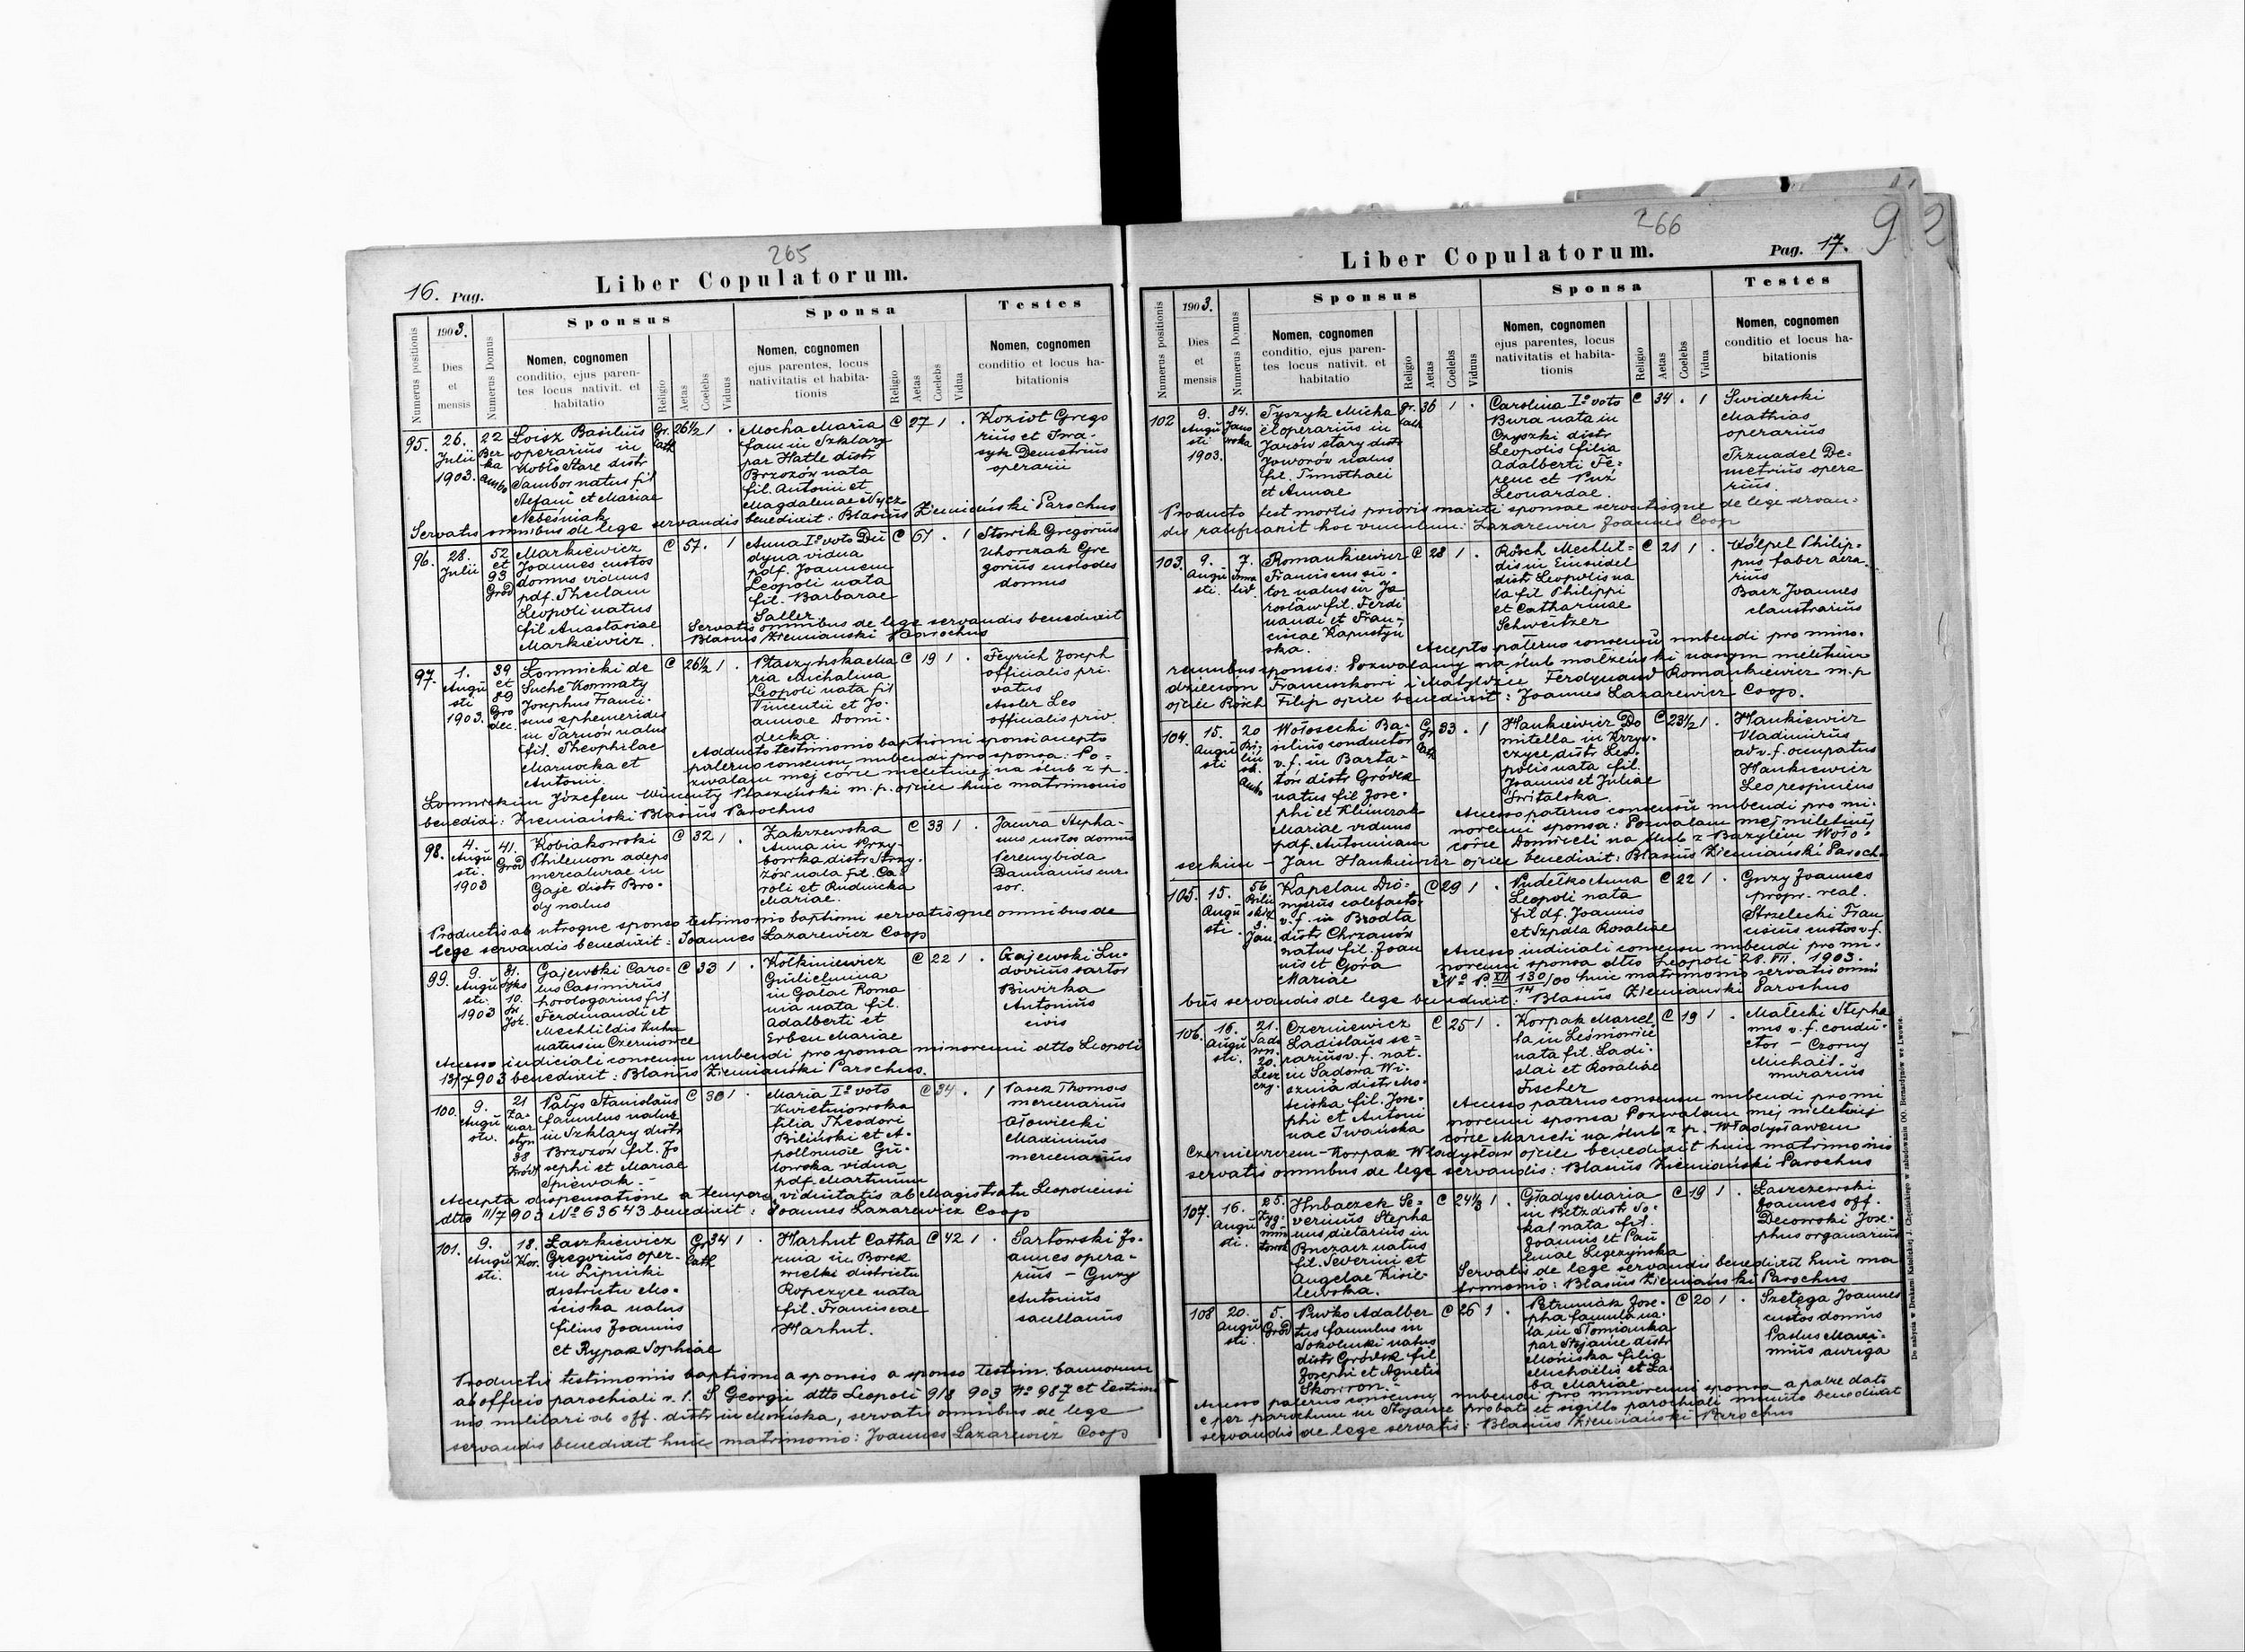 265
16. Pag.
Liber Copulatorum.
Numerus positionis
1903.
Dies
et
mensis
Numerus Domus
Sponsus
Nomen, cognomen
conditio, ejus paren-
tes locus nativit. et
habitatio
Religio
Aetas
Coelebs
Viduus
Sponsa
Nomen, cognomen
ejus parentes, locus
nativitatis et habita-
tionis
Religio
Aetas
Coelebs
Vidua
Testes
Nomen, cognomen
conditio et locus ha-
bitationis
95.
26.
Julii
1903.
22
Ber
ka
Loisz Basilius
operarius in
Kobło Stare distr
Sambor natus fil
Stefani et Mariae
Nebeśniak
Gr.
cath
26½ 1 .
Mocha Maria
fam in Szklary
par Hatle distr
Brzozów nata
fil. Antonii et
Magdalenae Nycz
C 27 1 .
Kozioł Grego
rius et Iwa-
syk Demetrius
operarii
Servatis omnibus de lege servandis benedixit: Blasius Ziemiański Parochus
96.
28.
Julii
52
et
93
Gród
Markiewicz
Joannes custos
domus viduus
pdf. Theclam
Leopoli natus
fil Anastasiae
Markiewicz.
C 57. 1
Anna Iº voto Du
dyna vidua
pdf. Joannem
Leopoli nata
fil. Barbarae
Saller
C 61 . 1
Słowik Gregorius
Uhorczak Gre
gorius custodes
domus
Servatis omnibus de lege servandis benedixit
Blasius Ziemiański Parochus
97.
1.
Augu
sti
1903.
39
et
89
Gro
dec.
Łomnicki de
Suche Kormaty
Josephus Franci-
scus ephemerides
in Tarnów natus
fil. Theophilae
Marnocka et
Antonii.
C 26½ 1 .
Ptaszyńska Ma
ria Michalina
Leopoli nata fil
Vincentii et Jo-
annae Domi-
decka.
C 19 1 .
Feyrich Joseph
officialis pri-
vatus
Assler Leo
officialis priv.
Adducto testimonio baptismi sponsi accepto
paterno consensu nubendi pro sponsa. Po-
zwalam mej córce nieletniej na ślub z p.
Łomnickim Józefem Wincenty Ptaszyński m. p. ojciec huic matrimonio
benedixi: Ziemiański Blasius Parochus
98.
4.
Augu
sti.
1903
41.
Gród
Kobiakowski
Philemon adeps
mercaturae in
Gaje distr Bro-
dy natus
C 32 1 .
Zakrzewska
Anna in Przy-
bowka distr Strzy-
żów nata fil. Ca-
roli et Rudnicka
Mariae.
C 33 1 .
Jamra Stepha-
nus custos domus
Peremybida
Damianus cur
sor.
Productis ab utroque sponso testimonio baptismi servatisque omnibus de
lege servandis benedixit: Joannes Łazarewicz Coop
99.
9.
Augu
sti.
1903
31.
Syks
10.
Gajewski Caro-
lus Casimirus
horologarius fil
Ferdinandi et
Mechtildis Kuhn
natus in Czerniowce
C 33 1 .
Kołkiniewicz
Guilielmina
in Gałac Roma
nia nata fil.
Adalberti et
Erben Mariae
C 22 1 .
Gajewski Lu-
dovicus sartor
Biwirka
Antonius
civis
Accesso iudiciali consensu nubendi pro sponsa minorenni dtto Leopoli
13/7 903 benedixit: Blasius Ziemiański Parochus.
100.
9.
Augu
sti.
21
Za-
mar
styn
38
Patys Stanislaus
famulus natus
in Szklary distr
Brzozów fil. Jo
sephi et Mariae
Śpiewak.-
C 30 1 .
Maria Iº voto
Kwietniowska
filia Theodori
Biliński et A-
polloniae Gu-
towska vidua
pdf. Martinum
C 34 . 1
Pasek Thomas
mercenarius
Ołowiecki
Maximius
mercenarius
Accepta dispensatione a tempore viduitatis ab Magistratu Leopoliensi
dtto 11/7 903 Nº 63643 benedixit: Joannes Łazarewicz Coop
101.
9.
Augu
sti.
18.
Kor.
Łaszkiewicz
Gregorius oper-
in Lipniki
districtu Mo-
ściska natus
filius Joannis
et Rypak Sophiae
Gr
cath
34 1 .
Harhut Catha
rina in Borek
wielki districtu
Ropczyce nata
fil. Franciscae
Harhut.
C 42 1 .
Sartowski Jo-
annes opera-
rius - Guzy
Antonius
sacellanus
Productis testimoniis baptismi a sponsis a sponso testim. bannorum
ab officio parochiali r. l. S Georgii dtto Leopoli 9/8 903 Nº 987 et testimo
nio militari ab off. distr in Mościska, servatis omnibus de lege
servandis benedixit huic matrimonio: Joannes Łazarewicz Coop
266
92
Liber Copulatorum.
Pag. 17.
Numerus positionis
1903.
Dies
et
mensis
Numerus Domus
Sponsus
Nomen, cognomen
conditio, ejus paren-
tes locus nativit. et
habitatio
Religio
Aetas
Coelebs
Viduus
Sponsa
Nomen, cognomen
ejus parentes, locus
nativitatis et habita-
tionis
Religio
Aetas
Coelebs
Vidua
Testes
Nomen, cognomen
conditio et locus ha-
bitationis
102
9.
Augu
sti
1903.
84.
Jano
wska
Tyszyk Micha
el operarius in
Jazów stary distr
Jaworów natus
fil. Timothaei
et Annae
gr.
cath
36 1 .
Carolina Iº voto
Bura nata in
Czyszki distr
Leopolis filia
Adalberti Fe-
renc et Puz
Leonardae.
C 34 . 1
Swiderski
Mathias
operarius
Trznadel De-
metrius opera
rius.
Producto test mortis prioris mariti sponsae servatisque de lege servan-
dis ratificavit hoc vinculum: Łazarewicz Joannes Coop
103.
9.
Augu
sti.
7.
Romankiewicz
Franciscus su-
tor natus in Ja
rosław fil. Ferdi
nandi et Fran-
ciscae Kapustyń
ska.
C 28 1 .
Rösch Mechtil-
dis in Einsidel
distr Leopolis na
ta fil Philippi
et Catharinae
Schweitzer
C 21 1 .
Kölpel Philip-
pus faber aera-
rius
Bacz Joannes
claustrarius
Accepto paterno consensu nubendi pro mino-
rennibus sponsis: Pozwalamy na ślub małżeński naszym nieletnim
dzieciom Franciszkowi i Matyldzie Ferdynand Romankiewicz m.p
ojciec Rösch Filip ojciec benedixit: Joannes Łazarewicz Coop.
104.
15.
Augu
sti
20
Wołosecki Ba-
silius conductor
v. f. in Barta-
tów distr Gródek
natus fil Jose-
phi et Klimczak
Mariae viduus
pdf. Antoninam
Gr
cath
33 . 1
Hankiewicz Do
mitella in Krzyw-
czyce distr Leo-
polis nata fil.
Joannis et Juliae
Świtalska.
C 23½ 1 .
Hankiewicz
Vladimirus
ad v. f. occupatus
Hankiewicz
Leo respiciens
Accesso paterno consensu nubendi pro mi-
norenni sponsa: Pozwalam mej nieletniej
córce Domiceli na ślub z Bazylim Woło-
seckim - Jan Hankiewicz ojciec benedixit: Blasius Ziemiański Paroch.
105.
15.
Augu
sti.
56
Kapelan Dio-
nysius calefactor
v. f. in Brodła
distr Chrzanów
natus fil. Joan
nis et Góra
Mariae
C 29 1 .
Pudełko Anna
Leopoli nata
fil df. Joannis
et Szpala Rosaliae
C 22 1 .
Guzy Joannes
propr. real.
Strzelecki Fran
ciscus custos v. f.
Accesso iudiciali consensu nubendi pro mi-
norenni sponsa dtto Leopoli 28. VII. 1903.
Nº P. XII 130/14 /00 huic matrimonio servatis omni
bus servandis de lege benedixit: Blasius Ziemiański Parochus
106.
16.
Augu
sti.
21.
Sado
wn.
20.
Lesz
czy.
Czerniewicz
Ladislaus se-
rarius v. f. nat.
in Sadowa Wi-
sznia distr Mo-
ściska fil. Jose-
phi et Antoni
nae Iwańska
C 25 1 .
Korpak Marcel
la in Leśniowice
nata fil. Ladi-
slai et Rosaliae
Fischer
C 19 1 .
Małecki Stepha
nus v. f. condu-
ctor - Czorny
Michaël.
murarius
Accesso paterno consensu nubendi pro mi
norenni sponsa Pozwalam mej nieletniej
córce Marceli na ślub z p. Władysławem
Czerniewiczem - Korpak Władysław ojciec benedixit huic matrimonio
servatis omnibus de lege servandis: Blasius Ziemiański Parochus
107.
16.
Augu
sti.
25.
Zyg-
mun
towsk
Hnbaczek Se-
verinus Stepha
nus dietarius in
Buczacz natus
fil. Severini et
Angelae Kisie-
lewska.
C 24⅓ 1 .
Gładys Maria
in Betz distr So-
kal nata fil.
Joannis et Pau
linae Legezyńska
C 19 1 .
Łaszczewski
Joannes off.
Decowski Jose-
phus organarius
Servatis de lege servandis benedixit huic ma
trimonio: Blasius Ziemiański Parochus
108
20.
Augu
sti.
5.
Gród
Piwko Adalber
tus famulus in
Sokolniki natus
distr Gródek fil
Josephi et Agnetis
Skowron.
C 26 1 .
Petruniak Jose-
pha famula na-
ta in Słomianka
par Stojańce distr
Mościska filia
Michaëlis et Ła-
ba Mariae
C 20 1 .
Szeliga Joannes
custos domus
Paslus Maxi-
mius auriga
Accesso paterno consensu nubendi pro minorenni sponsa a patre dato
e per parochum in Stojańce probato et sigillo parochiali munito benedixit
servandis de lege servatis: Blasius Ziemiański Parochus
Do nabycia w Drukarni Katolickiej J. Chęcińskiego w zabudowaniu OO. Bernardynów we Lwowie.